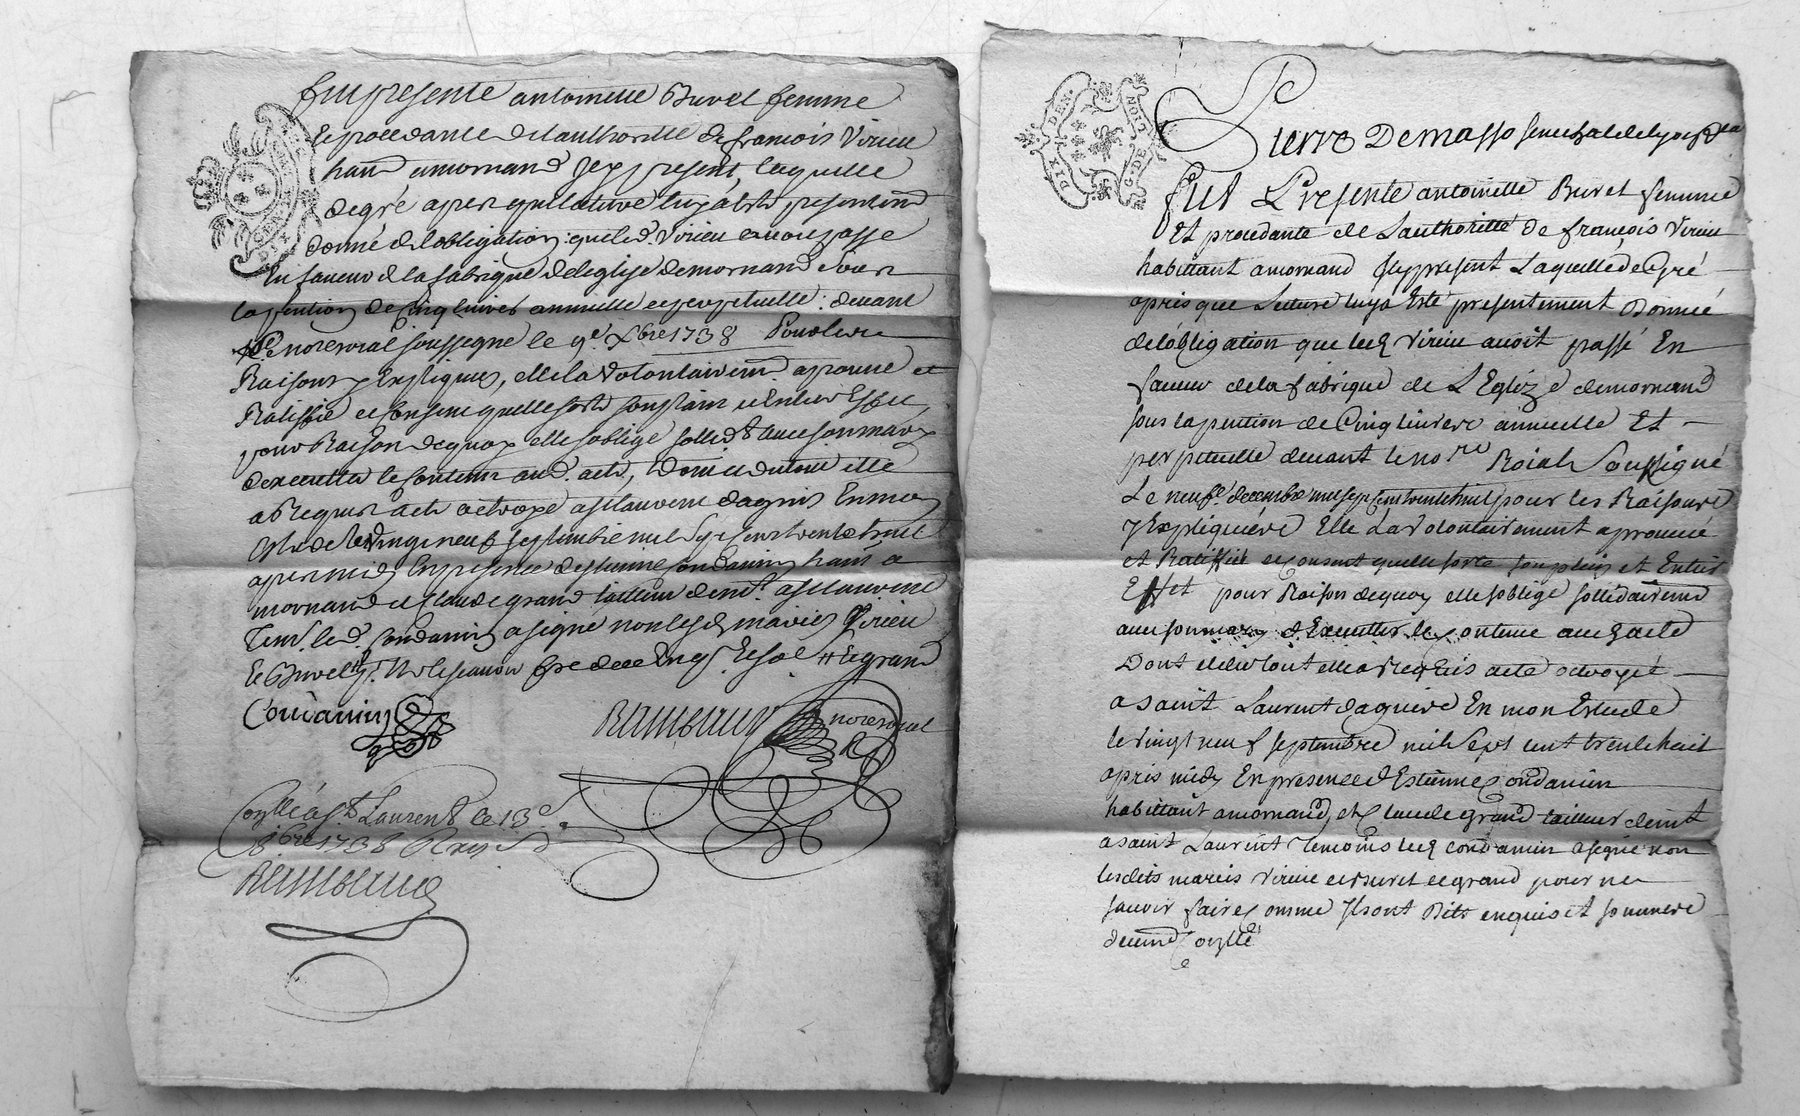 fut presente antoinette Buret femme
et procedante de lauthoritte de francois Virieu
habt a mornand Jcy present, laquelle
de gré apres que lecture luy a esté presentemt
donné de lobligation que led. Virieu a cy passé
En faveur de la fabrique de leglise de mornand sous
la pention de Cinq livres annuelle et perpetuelle devant
le nore royal soussigné le 9e Xbre 1738 Pour les
Raisons y Expliquées, elle la volontairemt aprouvé et
Ratiffié et consent quelle sorte son plain et Entier Effet
pour Raison de quoy elle soblige sollidt avec son mary
dexecutter le contenu aud. acte, dont et du tout elle
a Requis acte octroyé a st laurent dagnis En mon
Estude le vingt neuf septembre mil sept cent trente huit
apres midy En presence destienne Condamin habt a
mornand et Claude grand tailleur dhabt a st laurent
Tem. led. Condamin a signé non lesd. mariés Virieu
et Buret ny led. grand
Condamin
nore royal
Coñllé a st Laurent le 13e
8bre 1738 Reçu
DIX DEN.
G. DE
Pierre Demasso senechal de lyon
fut Presente antoinette Buret femme
Et procedante de Lauthoritté de françois Virieu
habittant a mornand Jcy present Laquelle de Gré
apris que Lecture luy a Esté presentement Donnée
de lobligation que led Virieu avoit passé En
faveur de la fabrique de L'Eglize de mornand
sous la pention de Cinq livres annuelle Et
perpetuelle devant le nore Roial Soussigné
Le neufe decembre mil sept cent trente huit pour les Raisons
y Expliquées Elle La volontairement aprouvé
et Ratiffié et consent quelle sorte son plain et Entier
Effet pour Raison de quoy elle soblige sollidairement
avec son mary d'Executter le contenu aud acte
Dont et du tout elle a Requis acte octroyé
a saint Laurent dagnis En mon Estude
le vingt neuf septembre mil Sept cent trente huit
apris midy En presence d'Estienne Condamin
habittant a mornand, et Claude grand tailleur dhabit
a saint Laurent Temoins led Condamin a signé non
lesdits mariés Virieu et Buret et grand pour ne
savoir faire comme Ils ont Dits enquis et sommés